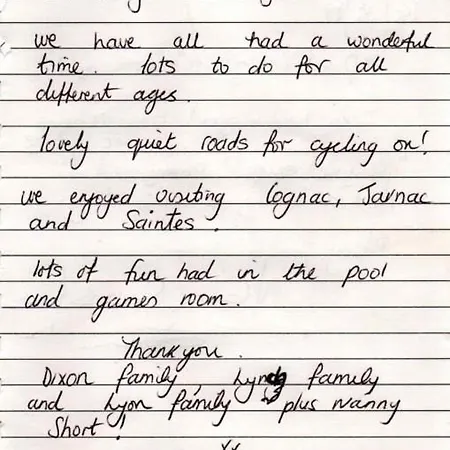 we have all had a wonderful
time. lots to do for all
different ages.
lovely quiet roads for cycling on!
we enjoyed visiting Cognac, Jarnac
and Saintes.
lots of fun had in the pool
and games room.
Thank you.
Dixon family, Lynch family
and Lyon family plus nanny
Short!
xx